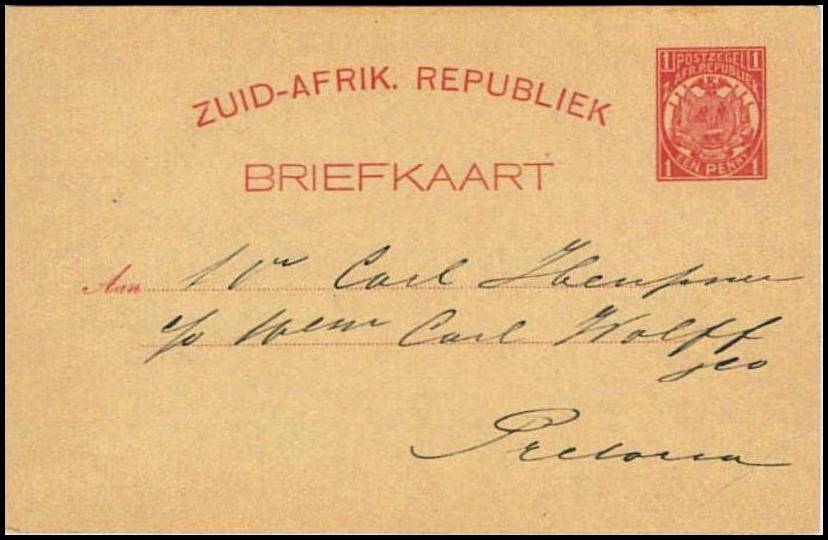 ZUID-AFRIK. REPUBLIEK
BRIEFKAART
1 POSTZEGEL 1
AFR. REPUBLIEK
EEN PENNY
1 1
Aan Carl
c/o Carl Wolff
Pretoria